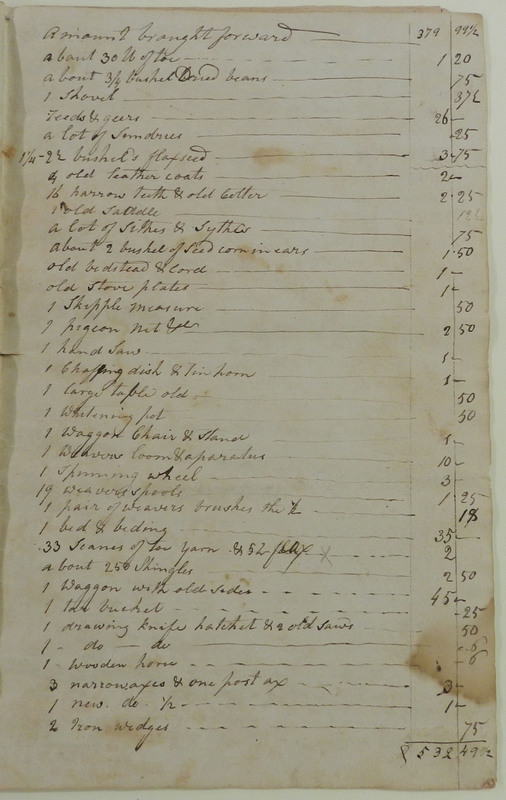 Amount brought forward 379 99½
about 30 lb of tow 1 20
about 3/4 bushel Dried beans 75
1 Shovel 37½
& geers 26 -
a lot of Sundries 25
1¼ - 2½ bushels flaxseed 3 75
4 old leather coats 2 -
16 harrow teeth & old Colter 2 25
1 old Saddle 12½
a lot of Sithes & Sythes 75
About 2 bushel of Seed corn in ears 1 50
old bedstead & cord 1 -
old Stove plates 1 -
1 Skipple measure 50
1 pigeon net &c 2 50
1 hand Saw 1 -
1 Chaffing dish & tin horn 1 -
1 large table old 50
1 Whitening pot 50
1 Waggon Chair & Stand 1 -
1 Weavers loom & aparatus 10 -
1 Spinning wheel 3 -
19 weavers spools 1 25
1 pair of weavers brushes the ½ 18
1 bed & beding 35 -
33 Scanes of tow yarn & 52 flax X 2
about 250 Shingles 2 50
1 Waggon with old sides 45 -
1 tar bucket 25
1 drawing knife hatchet & 2 old saws 50
1 - do - do 6
1 - wooden hone 6
3 narrow axes & one post ax 3 -
1 new do ½ 1 -
2 Iron wedges 75
532 49½